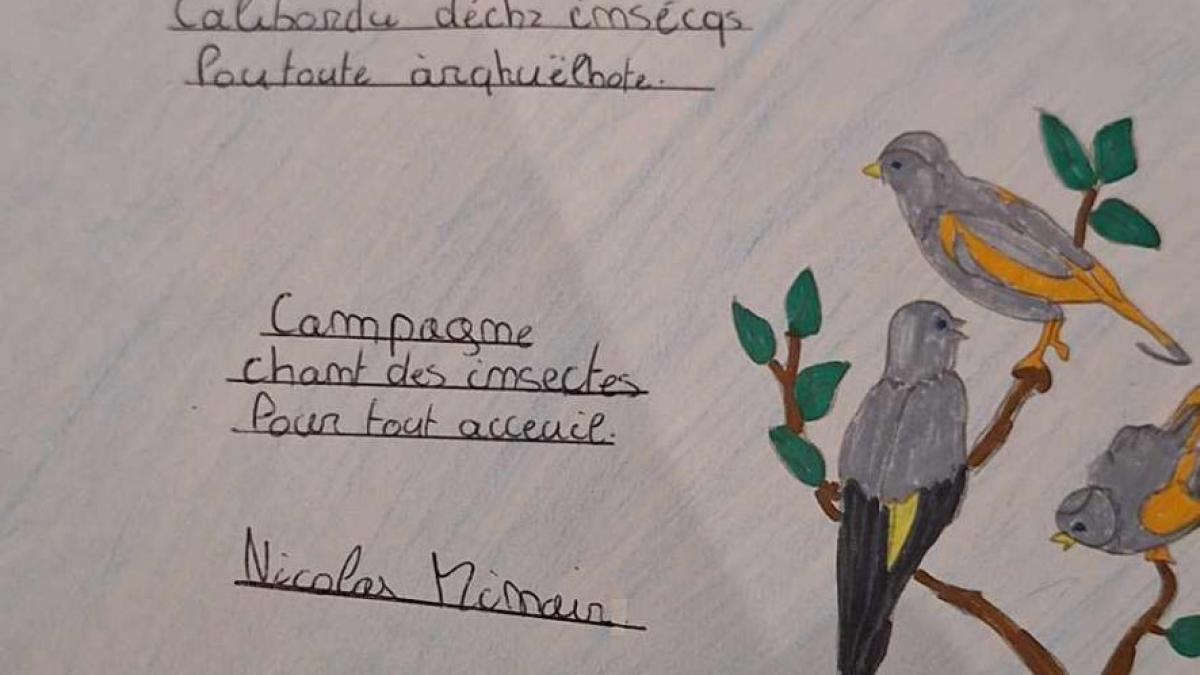 Calibordu déchz imsécqs
Poutoute àrqhuëlhote.
Campagne
chant des imsectes
Pour tout acceuil.
Nicolas Mimain